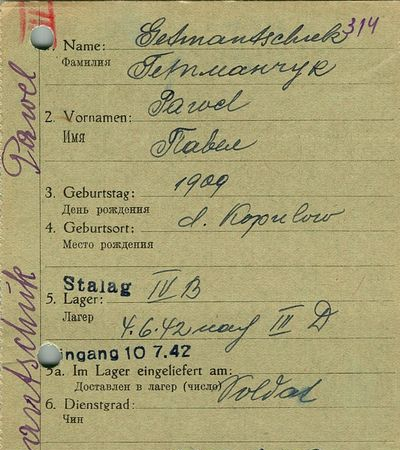 III
314
1. Name: Getmantschuk
Фамилия Гетманчук
2. Vornamen: Pawel
Имя Павел
3. Geburtstag: 1909
День рождения
4. Geburtsort: d. Kopulowo
Место рождения
Stalag IV B
5. Lager:
Лагер 4.6.42 nach III D
Eingang 10 7.42
5a. Im Lager eingeliefert am:
Доставлен в лагер (число)
6. Dienstgrad: Soldat
Чин
Pawel
antschuk